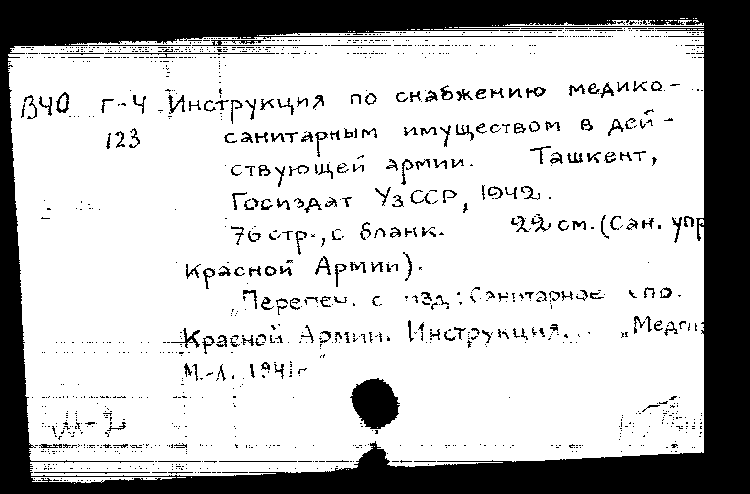 В40 Г-4 Инструкция по снабжению медико-
123 санитарным имуществом в дей-
ствующей армии. Ташкент,
Госиздат УзССР, 1942.
76 стр., с бланк. 22 см. (Сан. упр
Красной Армии).
„Перепеч. с изд.: Санитарное упр.
Красной Армии. Инструкция... „Медгиз
М.-Л. 1941г"
М-2